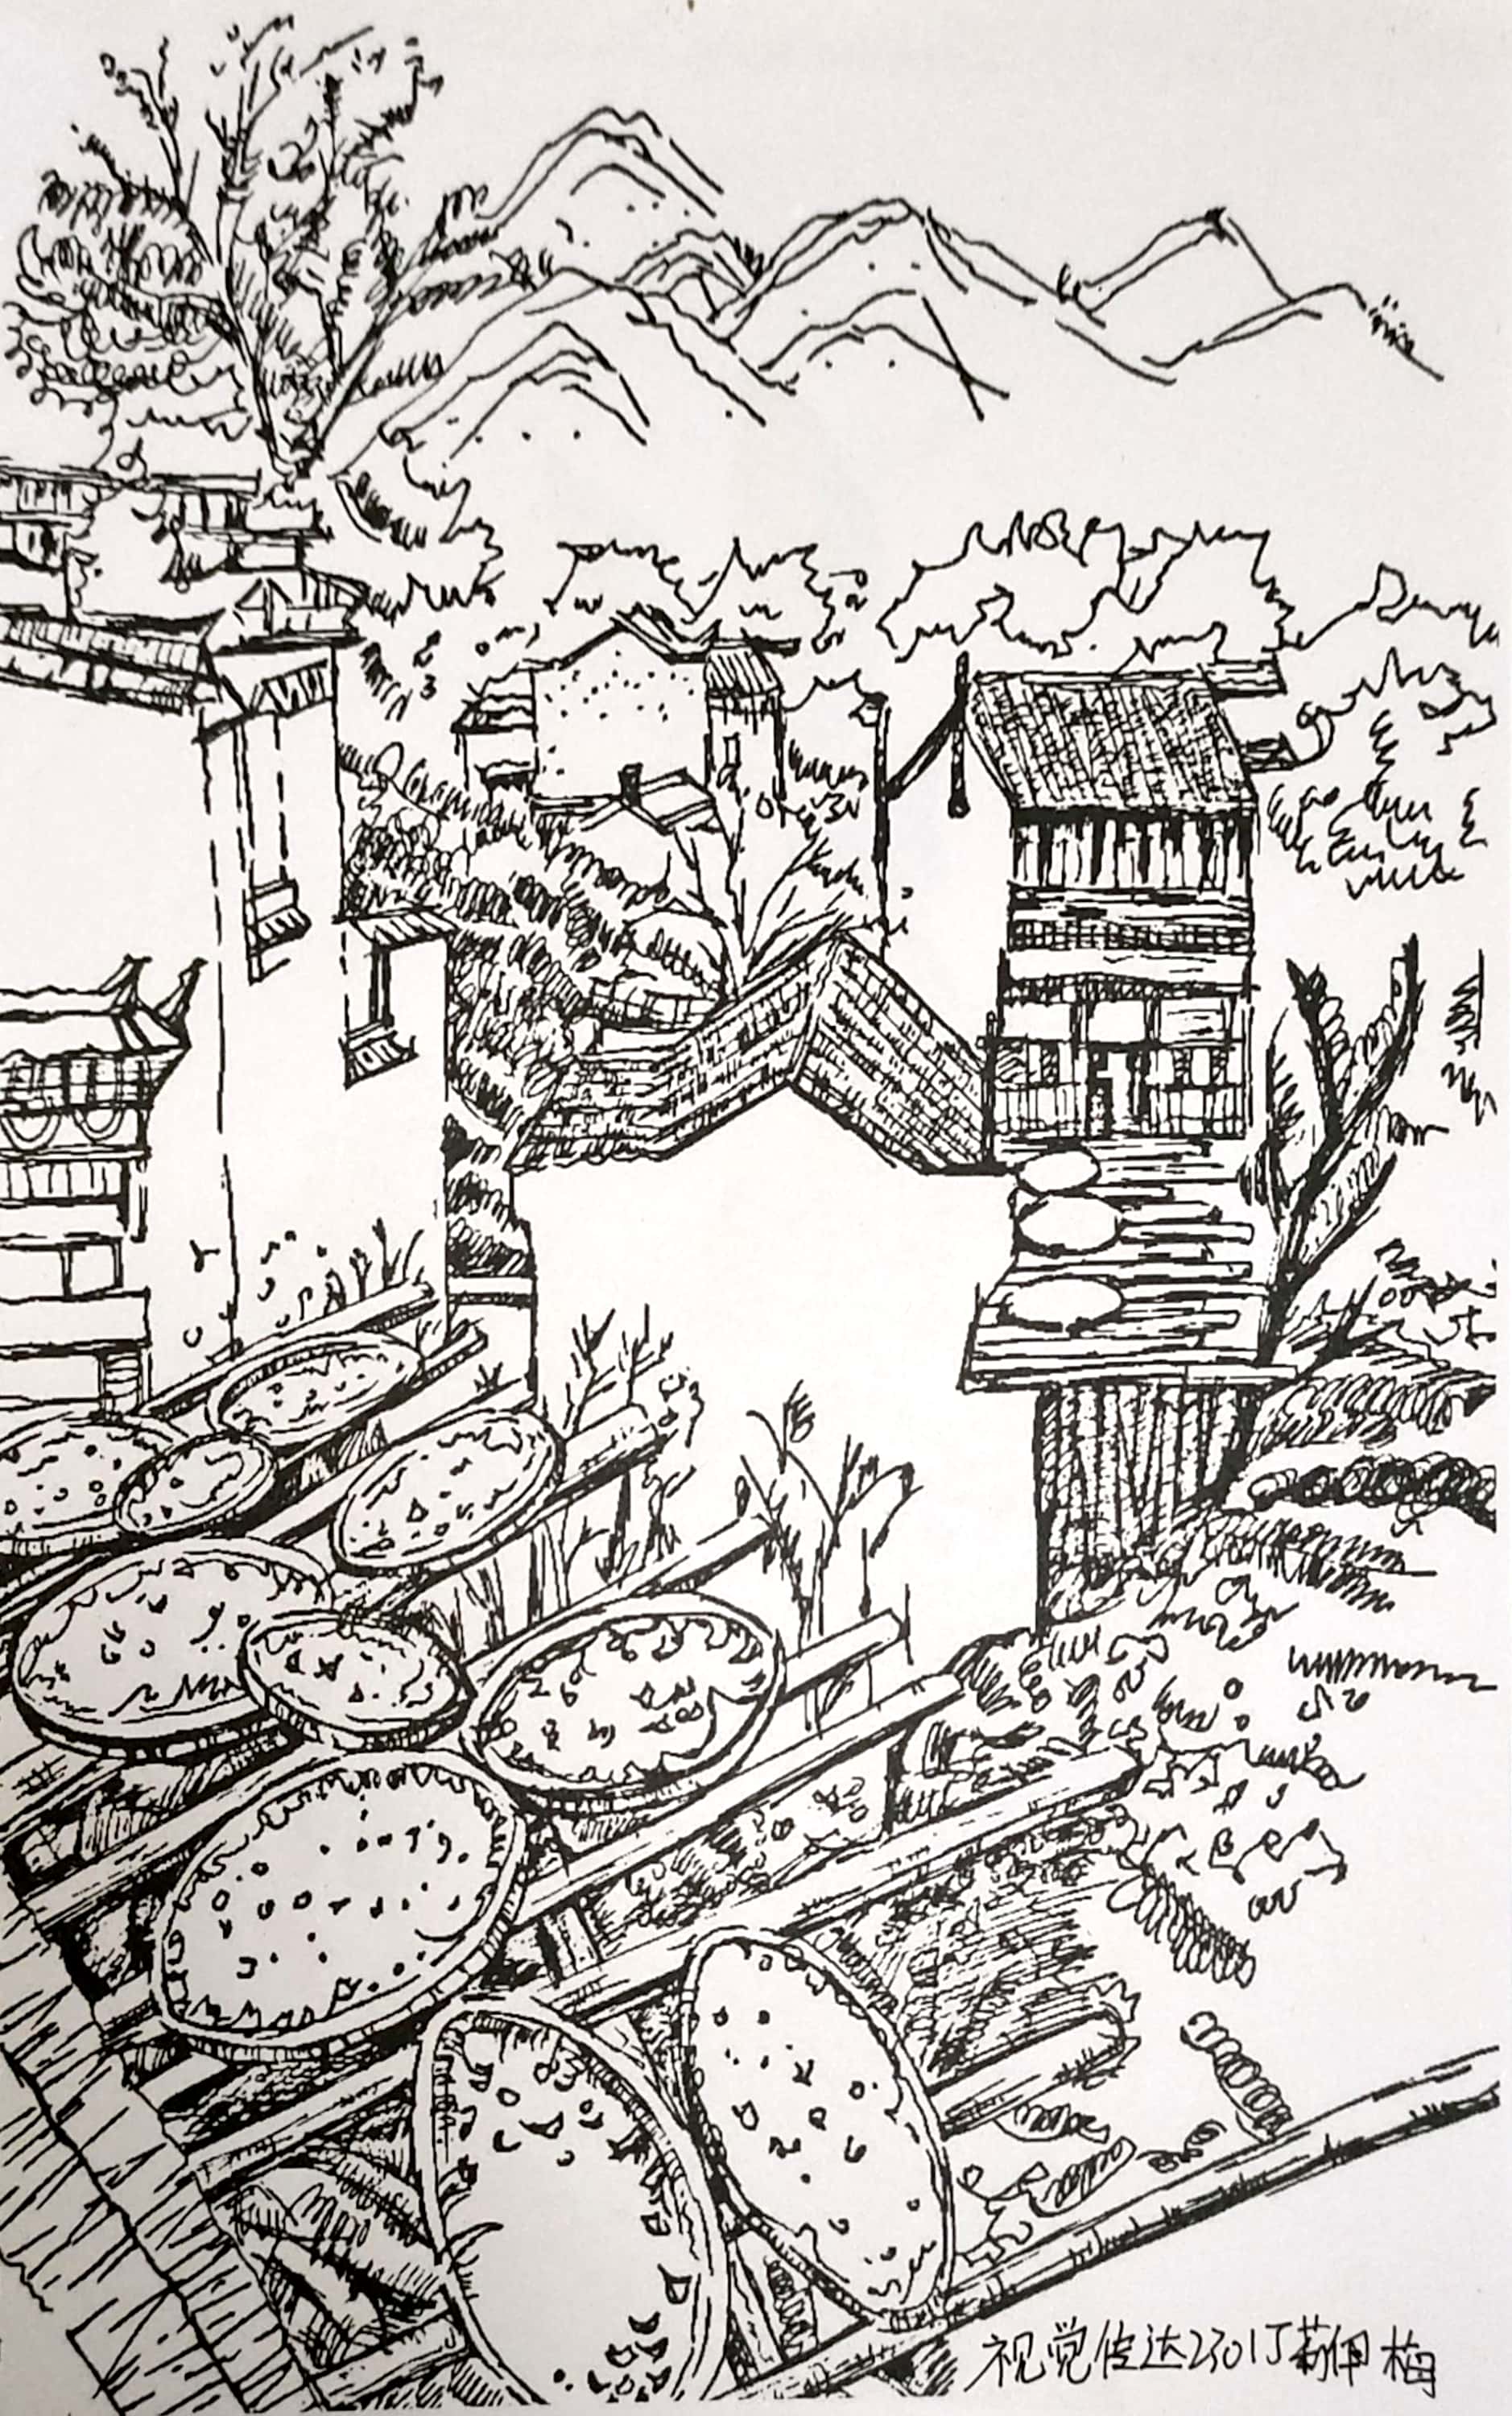 视觉传达2301丁 梅